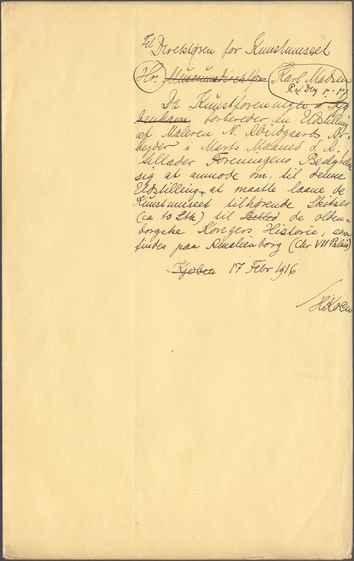 Til Direktøren for Kunstmuseet
Hr. Museumsdirektør Karl Madsen
R. af Dbg. p. p.
Da Kunstforeningen i Kjø-
benhavn forbereder en Udstilling
af Maleren N. Abildgaards Ar-
bejder i Marts Maaned d. A.,
tillader Foreningens Bestyrelse
sig at anmode om, til denne
Udstilling at maatte laane de
Kunstmuseet tilhørende Skitser
(ca 10 Stk) til de olden-
borgske Kongers Historie, som
findes paa Amalienborg (Chr VII Palais)
Kjøben 17 Febr 1916